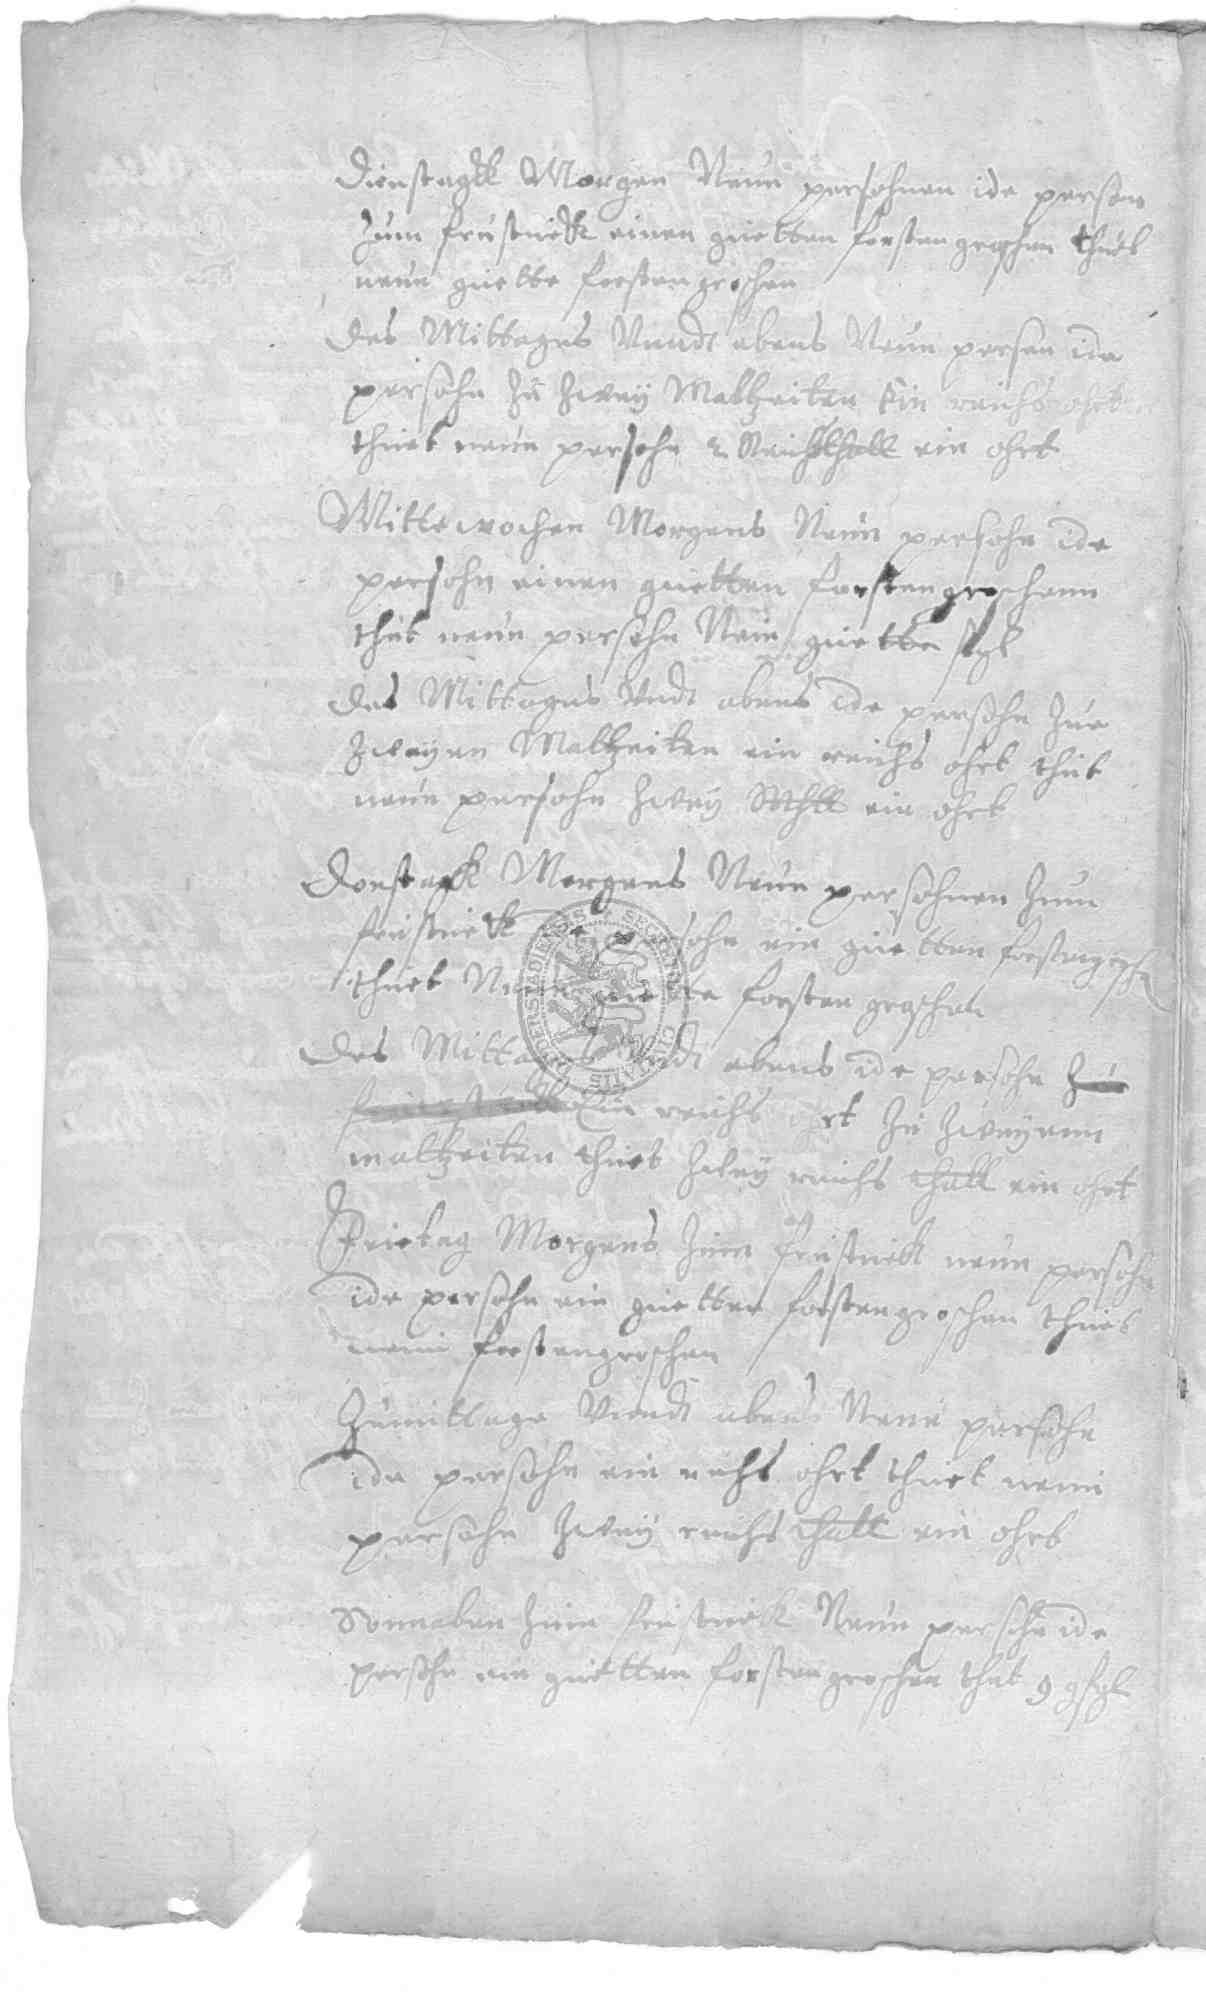 Dienstagk Morgen Neun persohnen ide person
zum frustuck einen guetten forstengroschen thuet
neun guette forstengroschen
Des Mittages Unndt abens Neun person ide
persohn zu zweÿ Maltzeiten Ein reichs ohrt
thuet neun persohn 2 Reichsthall ein ohrt
Mittewochen Morgens Neun persohn ide
persohn einen guetten forstengroschenn
thut neun persohn Neun guette
Des Mittages Undt abens ide persohn zue
zweÿen Maltzeiten ein reichs ohrt thut
neun persohn zweÿ Rthll ein ohrt
Donstagk Morgens Neun persohnen zum
frustuck persohn ein guetten
thuet forstengroschen
Des Mittages Undt abens ide persohn zu
Ein reichs ohrt zu zweÿenn
maltzeiten thuet zweÿ reichs thall ein ohrt
Freitag Morgens zum frustuck neun persohn
ide persohn ein guetten forstengroschen thuet
neun forstengroschen
Zumittage Unndt abens Neun persohn
ide persohn ein reichs ohrt thuet neun
persohn zweÿ reichs thall ein ohrt
Sonnaben zum frustuck Neun persohn ide
persohn ein guetten forstengroschen thut 9
SECRETUM CIVITATIS DUDERSTADIENSIS